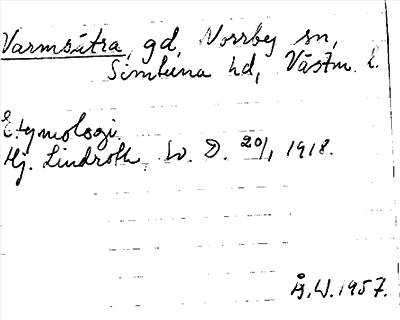 Varmsätra, gd, Norrby sn,
Simtuna hd, Västm. l.
Etymologi.
Hj. Lindroth, Sv. D. 20/1 1918.
Å.W. 1957.